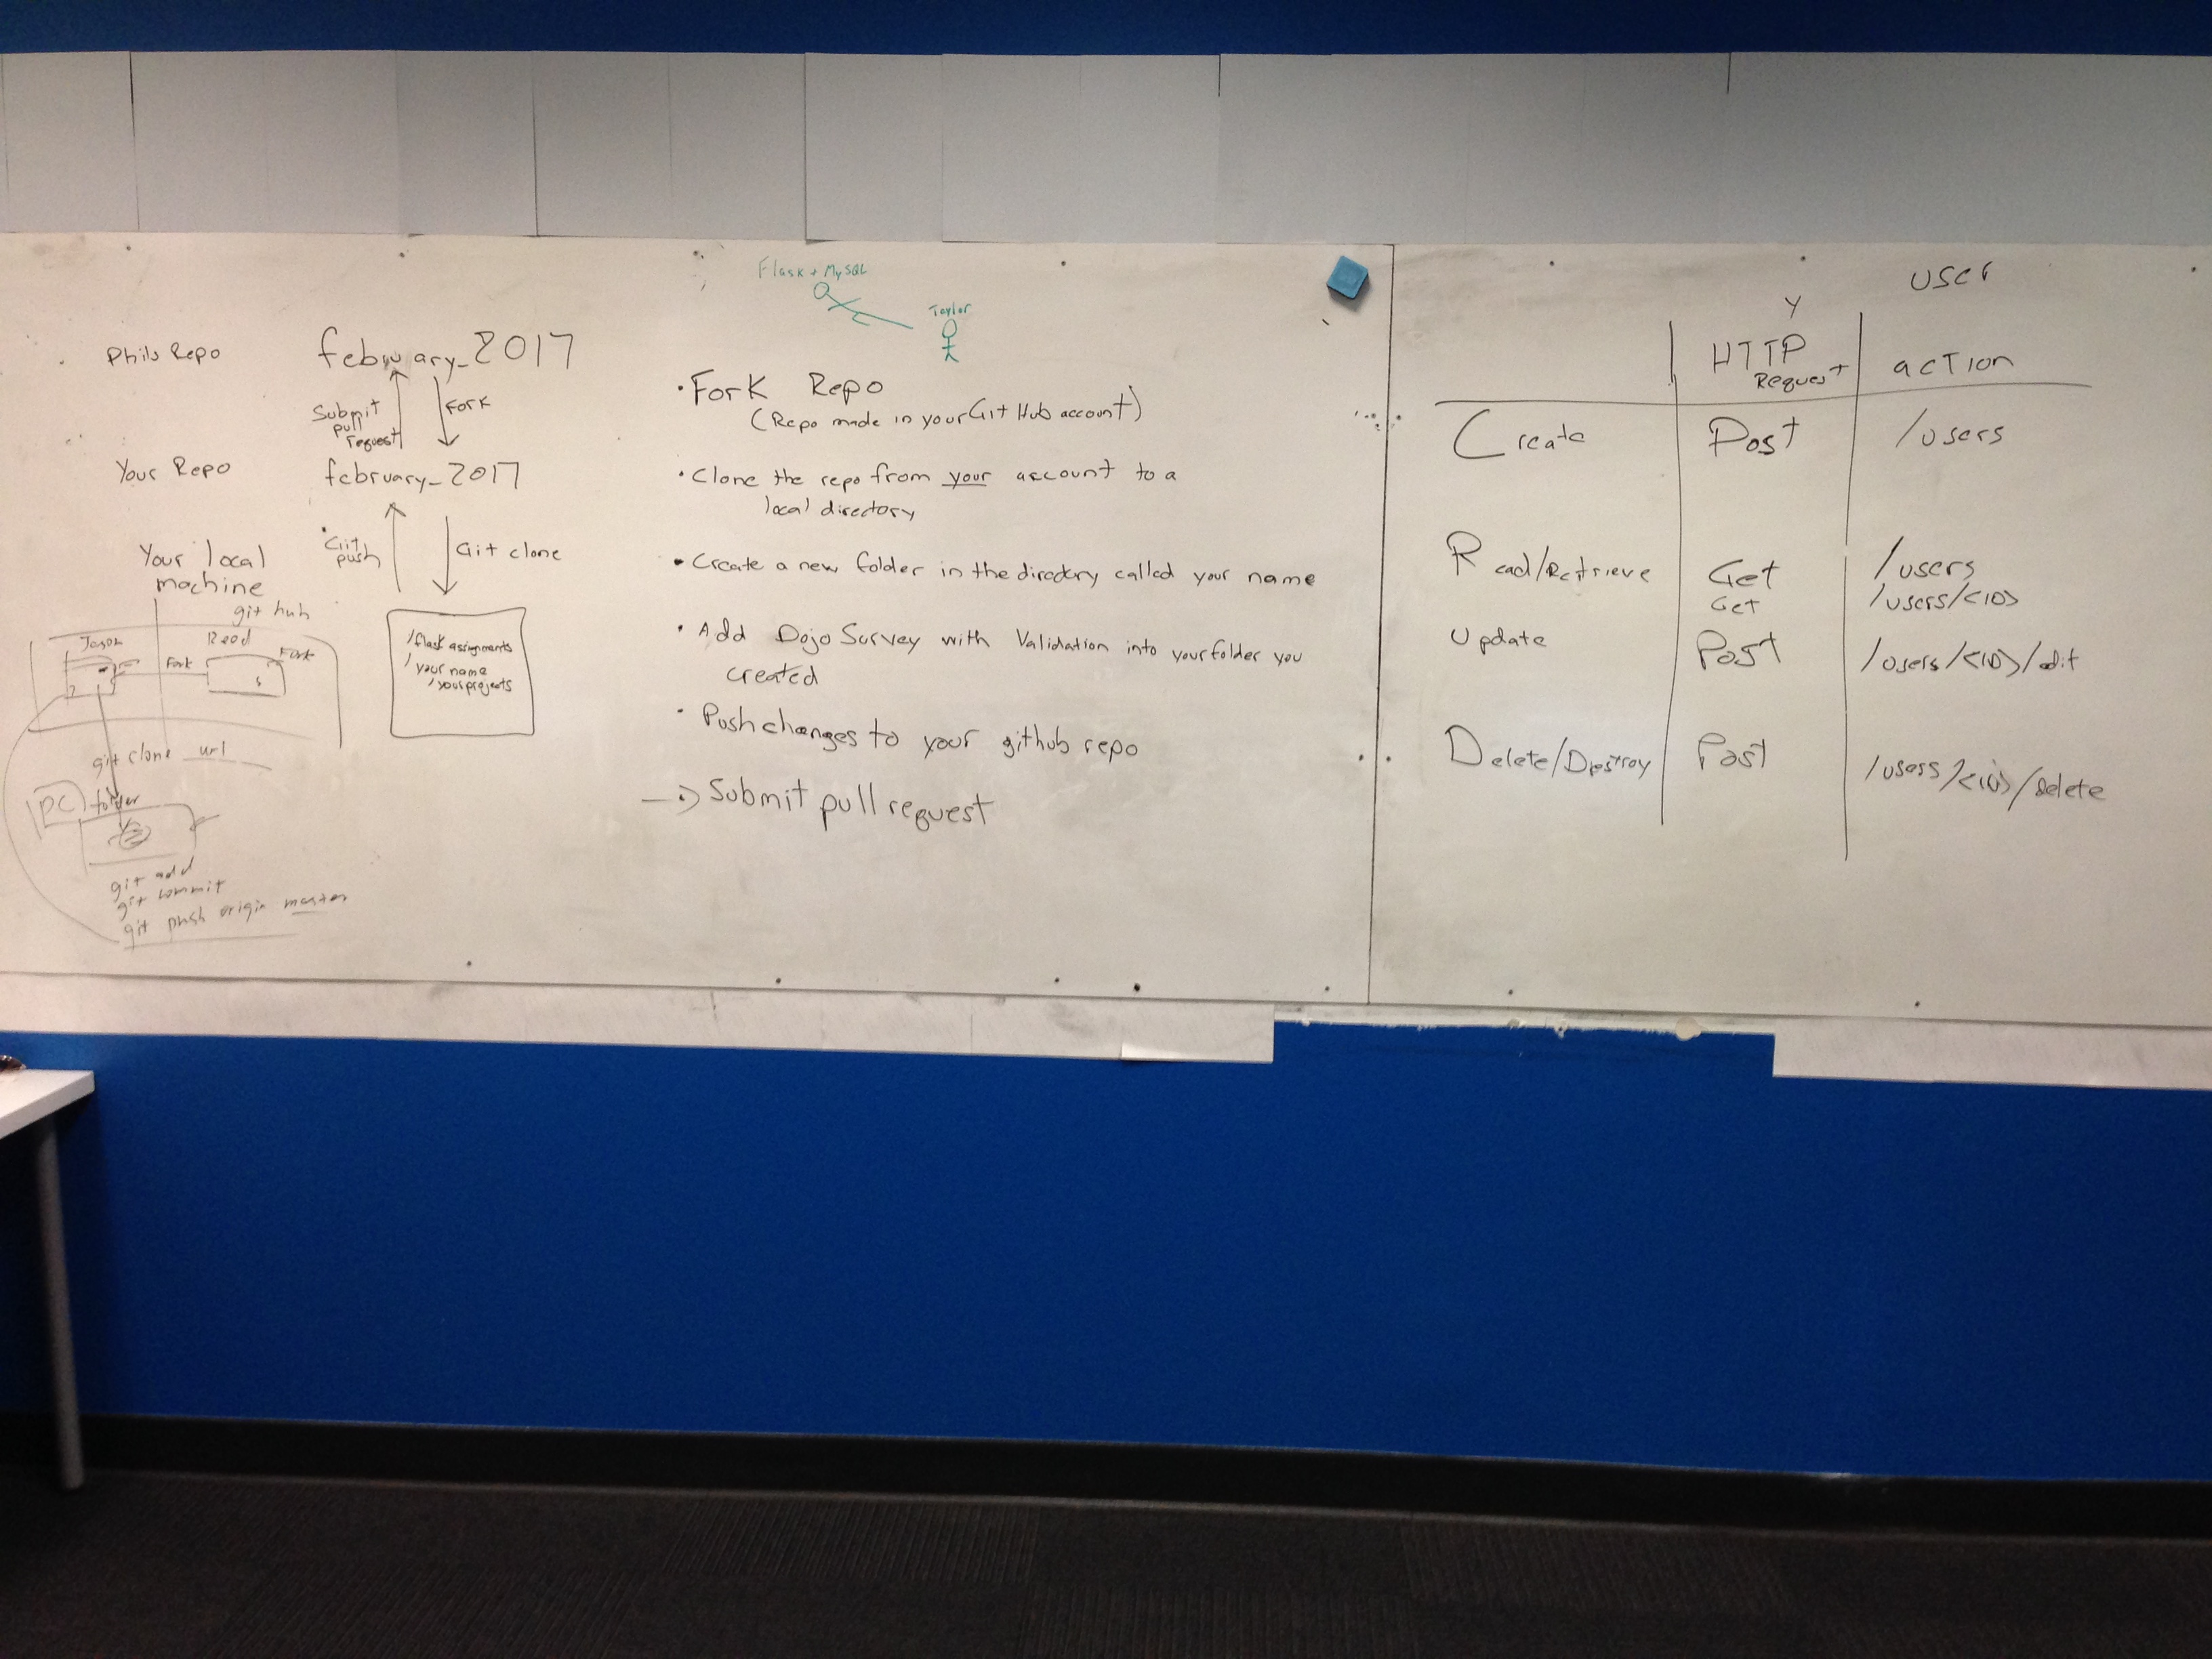 Phils Repo
february_2017
Submit
pull
request
Fork
Your Repo
february_2017
Git
push
Git clone
Your local
machine
git hub
Jason
Reed
Fork
Fork
/flask assignments
/ your name
/yourprojects
git clone url
PC
folder
git add
git commit
git push origin master
Flask + MySQL
Taylor
• Fork Repo
(Repo made in your GitHub account)
• Clone the repo from your account to a
local directory
• Create a new folder in the directory called your name
• Add Dojo Survey with Validation into your folder you
created
• Push changes to your github repo
→ Submit pull request
user
Y
HTTP
Request
action
Create Post /users
Read/Retrieve Get /users
Get /users/<ID>
Update Post /users/<ID>/edit
Delete/Destroy Post /users/<ID>/delete